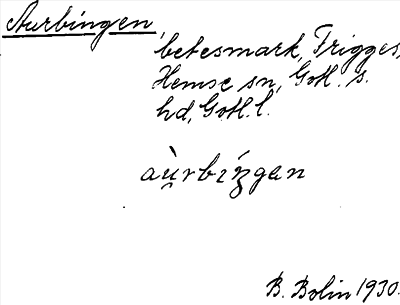 Aurbingen,
betesmark, Frigges,
Hemse sn, Gotl. s.
hd, Gotl. l.
aù̯rbíŋgan
B. Bolin 1930.